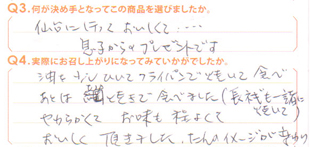 Q3.何が決め手となってこの商品を選びましたか。
仙台に行って おいしくて‥‥
息子からのプレゼントです
Q4.実際にお召し上がりになってみていかがでしたか。
油を少しひいてフライパンで
食べ
あとは
食べました(長ねぎも一緒に
やわらかくて お味も 程よくて
おいしく 頂きました.たんのイメージが